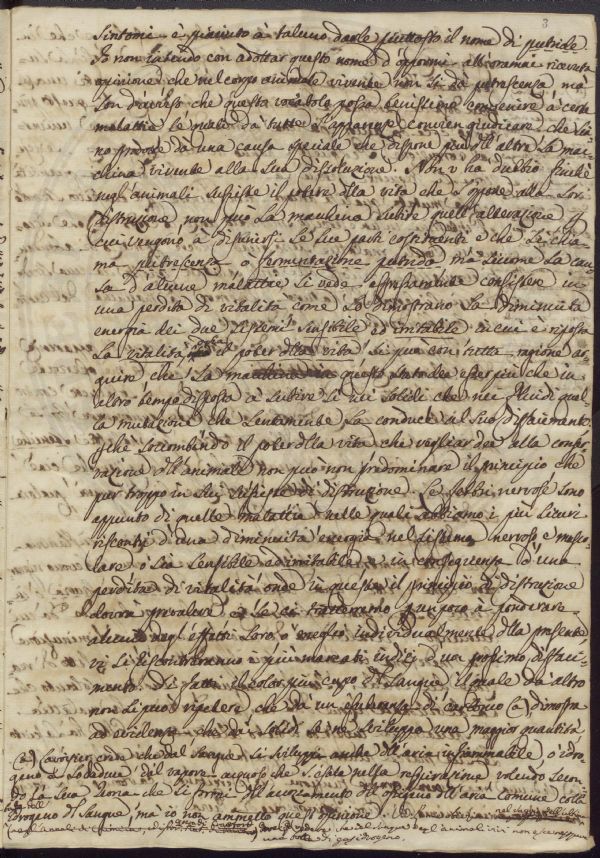 3
Sintomi è piaciuto à taluno darle piuttosto il nome di putride.
Io non intendo con adottar questo nome d'oppormi all'oramai ricevuta
opinione che nel corpo animale vivente non si dà putrescenza, mà
son d'avviso che questo vocabolo possa benissimo convenire à certe
malattie le quali da tutte l'apparenze convien giudicare che sia=
no prodotte da una causa speciale che dispone più dell'altre la mac=
china vivente alla sua dissoluzione. Non v'ha dubbio finchè
negl'animali sussiste il potere della vita che s'oppone alla lor
distruzione non può la macchina subire quell'alterazione p
cui vengono à disunirsi le sue parti costituenti e che si chia
ma putrescenza o fermentazione putrida mà siccome la cau
sa d'alcune malattie si vede espressamente consistere in
una perdita di vitalità come lo dimostrano la diminuita
energia dei due sistemi sensibile ed irritabile in cui è riposta
la vitalità il poter della vita si può con tutta ragione ar
guire che la in questo stato dee esser più che in
altro tempo disposta à subire sì nei solidi che nei fluidi quel
la mutazione che lentamente la conduce al suo disfacimento.
che soccombendo il poter della vita che vegliar dee alla conser
vazione dell'animale non può non predominare il principio che
pur troppo in lei risiede di distruzione. Le febbri nervose sono
appunto di quelle malattie nelle quali abbiamo i più sicuri
riscontri d'una diminuita energia nel sistema nervoso e musco
lare o sia sensibile ed irritabile e in conseguenza d'una
perdita di vitalità onde in queste il principio di distruzione
dovrà prevalere e se ci tratteremo p un poco à ponderare
attenti negl'effetti loro o meglio individualmente della presente
vi si riscontreranno i più marcati indizj d'un prossimo disfaci
mento. Di fatti il color più cupo del sangue il quale da altro
non si può ripetere che da un esuberanza di carbonio (a) dimostra
ad evidenza che dai solidi se ne sviluppa una maggior quantità,
(a) Lavoisier crede che dal sangue si sviluppi anche dell'aria infiammabile o idro
geno e lo deduce dal vapore acquoso che s'esala nella respirazione volendo secon
do la sua teoria che si formi dall'accozzamento dell'ossigeno dell'aria comune coll'
idrogeno del sangue, ma io non ammetto quest'opinione.
negl'animali vivi non si sviluppa
una bolla di gas idrogeno.